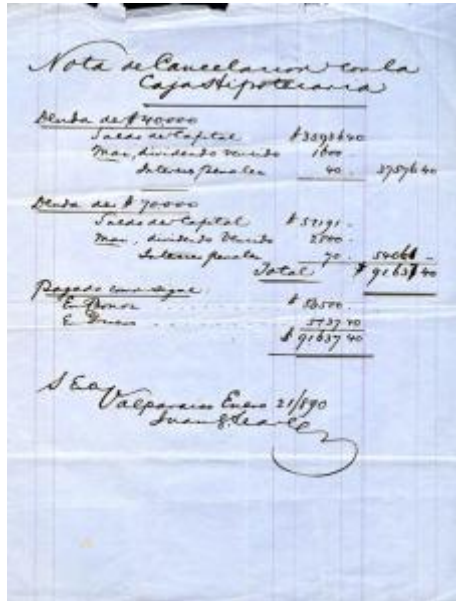 Nota de Cancelacion con la
Caja Hipotecaria
Deuda de $40000
Saldo de Capital $35936 40
Mas, dividendo vencido 1600 -
Interes penales 40 - 37576 40
Deuda de $70000
Saldo de Capital $51191 -
Mas, dividendo vencido 2800 -
Interes penales 70 - 54061 -
Total $91637 40
Pagado como sigue
En Bonos
En Dinero 
$91637 40
Valparaiso Enero 21/890